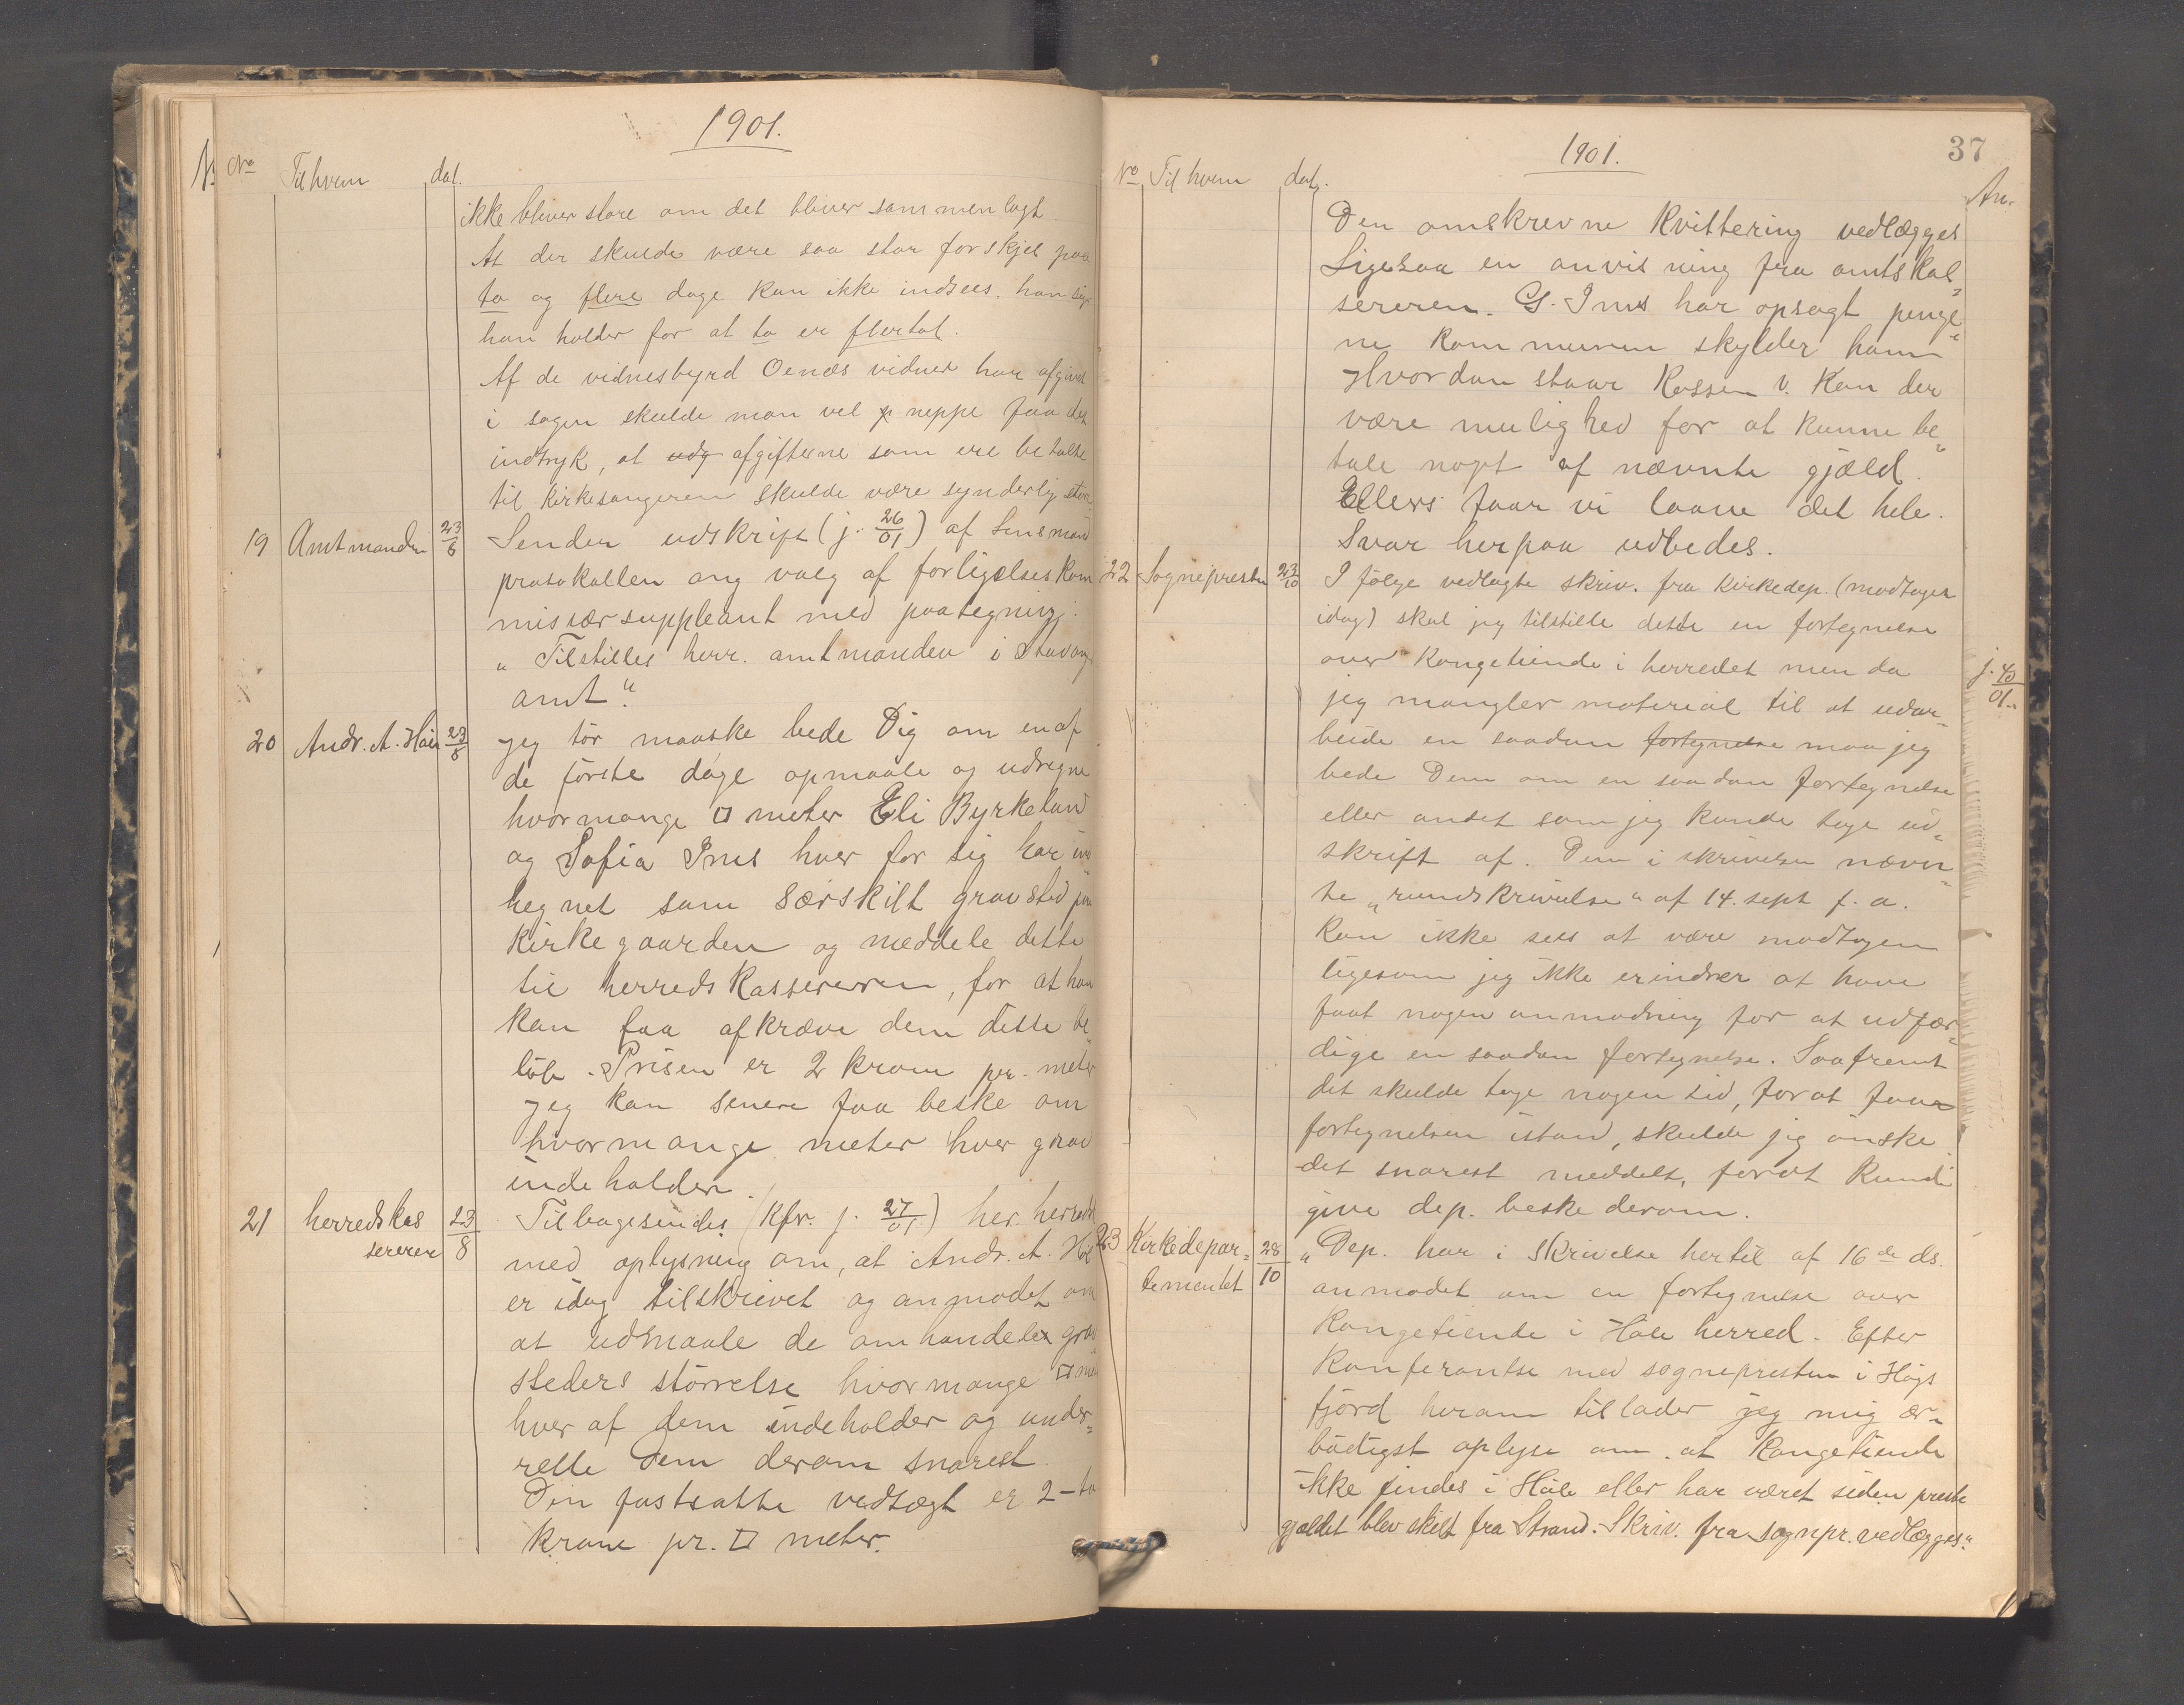 1901.
No Til hvem dat.
ikke bliver store om det bliver sammenlagt.
At der skulde være saa stor forskjel paa
to og flere dage kan ikke indsees. han
han holder for at to er flertal.
Af de vidnesbyrd Oenæs vidner har afgivet
i sagen skulde man vel neppe faa det
indtryk, at udg afgifterne som ere betalte
til kirkesangeren skulde være synderlig store
19 Amtmanden 23/6 Sender udskrift (j. 26/01) af Lensmand
protokollen ang valg af forligelseskom
missærsuppleant med paategning:
„Tilstilles herr. amtmanden i Stavang
amt".
20 Andr. A. Hole 23/8 Jeg tør maaske bede Dig om en af
de første dage opmaale og udregne
hvormange □ meter Eli Byrkeland
og Sofia Ims hver for sig har ind
hegnet som særskilt gravsted paa
kirkegaarden og meddele dette
til herredskassereren, for at han
kan faa afkræve dem dette be
løb. Prisen er 2 kroner per. meter
Jeg kan senere faa beske om
hvormange meter hver grav
indeholder.
21 herredskas 23/8 Tilbagesendes (kfr. j. 27/01) her. herredsk.
sererer med oplysning om, at Andr. A. Hole
er idag tilskrevet og anmodet om
at udmaale de omhandlede grav
steders størrelse hvormange □ me
hver af dem indeholder og under-
rette Dem derom snarest.
Den fastsatte vedtægt er 2 - to
krone pr. □ meter.
37
1901.
No Til hvem dat. An.
Den omskrevne kvittering vedlægges
Ligesaa en anvisning fra amtskas-
sereren. G. Ims har opsagt penge-
ne kommunen skylder ham
Hvordan staar kassen v. kan der
være mulighed for at kunne be-
tale noget af nævnte gjæld.
Ellers faar vi laane det hele.
Svar herpaa udbedes.
22 Sognepresten 23/10 I følge vedlagte skriv. fra kirkedep. (modtagen
idag) skal jeg tilstille dette en fortegnelse
over kongetiende i herredet men da
j. 40/01.
jeg mangler material til at udar-
beide en saadan fortegnelse maa jeg
bede Dem om en saadan fortegnelse
eller andet som jeg kunde tage ud-
skrift af. Den i skrivelsen nævn-
te „rundskrivelse" af 14. sept f. a.
kan ikke sees at være modtagen
ligesom jeg ikke erindrer at have
faat nogen anmodning for at udfær-
dige en saadan fortegnelse. Saafremt
det skulde tage nogen tid, for at faa
fortegnelsen istand, skulde jeg ønske
det snarest meddelt, forat kunde
give dep. beske derom.
23 Kirkedepar- 28/10 „Dep. har i skrivelse hertil af 16de ds.
tementet anmodet om en fortegnelse over
kongetiende i Hole herred. Efter
konferantse med sognepresten i Høgs
fjord herom tillader jeg mig ær-
bødigst oplyse om at kongetiende
ikke findes i Hole eller har været siden preste
gjældet blev skilt fra Strand. Skriv. fra sognpr. vedlægges."